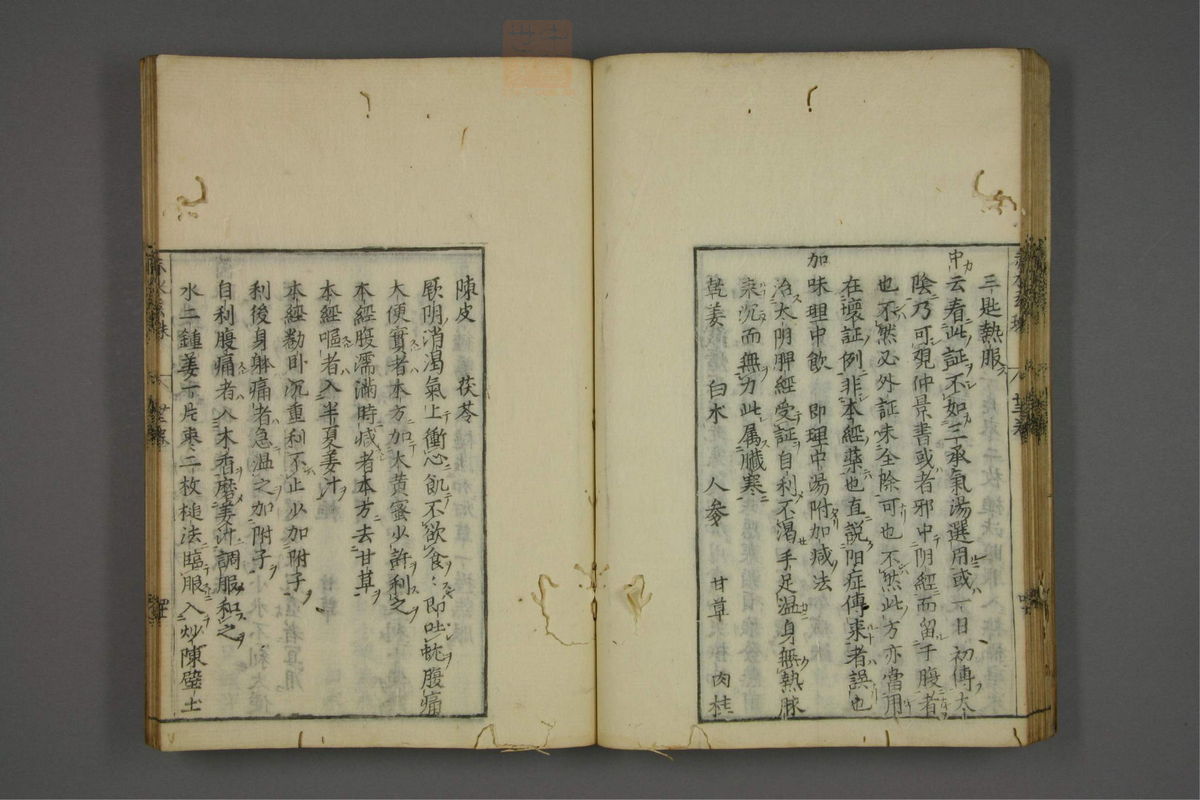 三匙熱服
中云看此証不如三承氣湯選用或一日初傳太
陰乃可覌仲景書或者邪中阴經而留于腹者
也不然必外証未全除可也不然此方亦當用
在壞証例非本經藥也直説阳症傳来者誤也
加味理中飲　即理中湯附加减法
治太阴脾經受証自利不渇手足温身無熱脉
来沉而無力此属臟寒
乾姜　白水　人參　甘草　肉桂
陳皮　茯苓
厥阴消渇氣上衝心飢不欲食食即吐蚘腹痛
大便實者本方加大黄蜜少許利之
本經腹濡滿時减者本方去甘草
本經嘔者入半夏姜汁
本經勌卧沉重利不止少加附子
利後身躰痛者急温之加附子
自利腹痛者入木香磨姜汁調服和之
水二鍾姜一片枣二枚槌法臨服入炒陳壁土